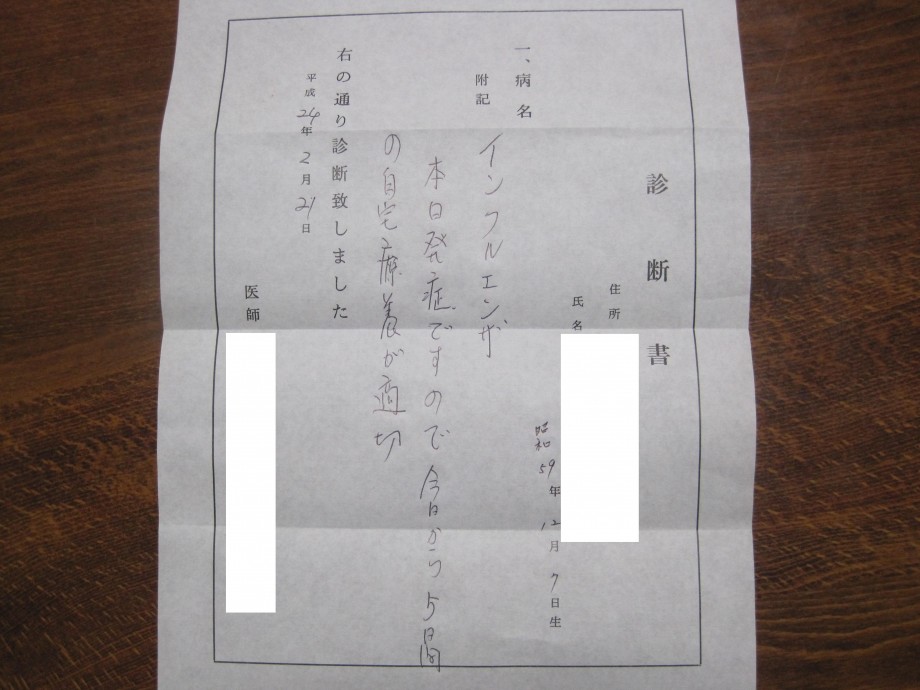 診断書
住所
氏名
昭和59年12月7日生
一、病名
インフルエンザ
附記
本日発症ですので今日から5日間
の自宅療養が適切
右の通り診断致しました
平成24年2月21日
医師